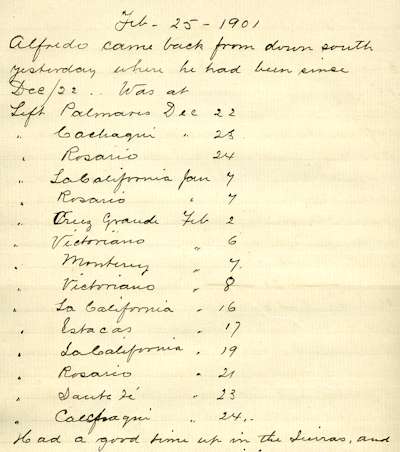 Feb - 25 - 1901
Alfredo came back from down south
yesterday where he had been since
Dec/22 .. Was at
Left Palmares Dec 22
" Cachaqui " 23
" Rosario 24
" La California Jan 7
" Rosario " 7
" Cruz Grande Feb 2
" Victoriano " 6
" Monterey " 7.
" Victoriano " 8
" La California " 16
" Estacas " 17
" La California " 19
" Rosario " 21
" Sante Fé " 23
" Calchaqui " 24..
Had a good time up in the Sierras, and